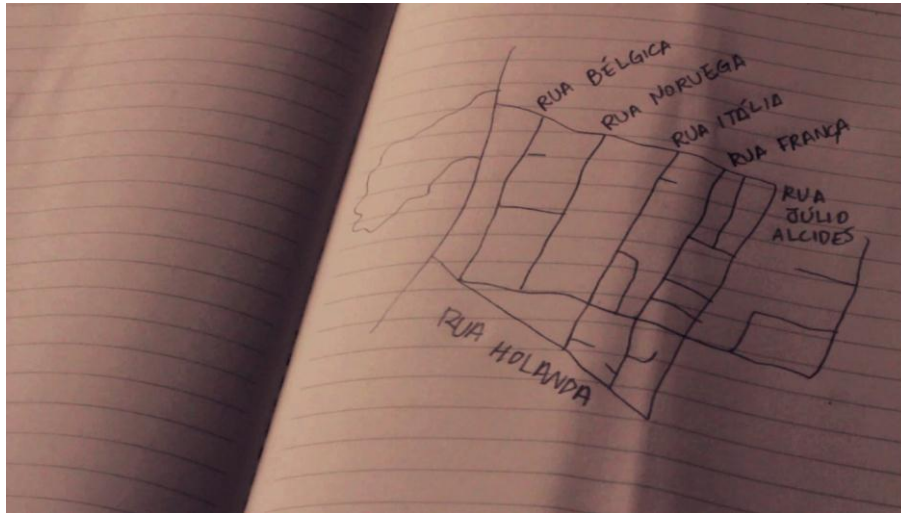 RUA BÉLGICA
RUA NORUEGA
RUA ITÁLIA
RUA FRANÇA
RUA
JÚLIO
ALCIDES
RUA HOLANDA